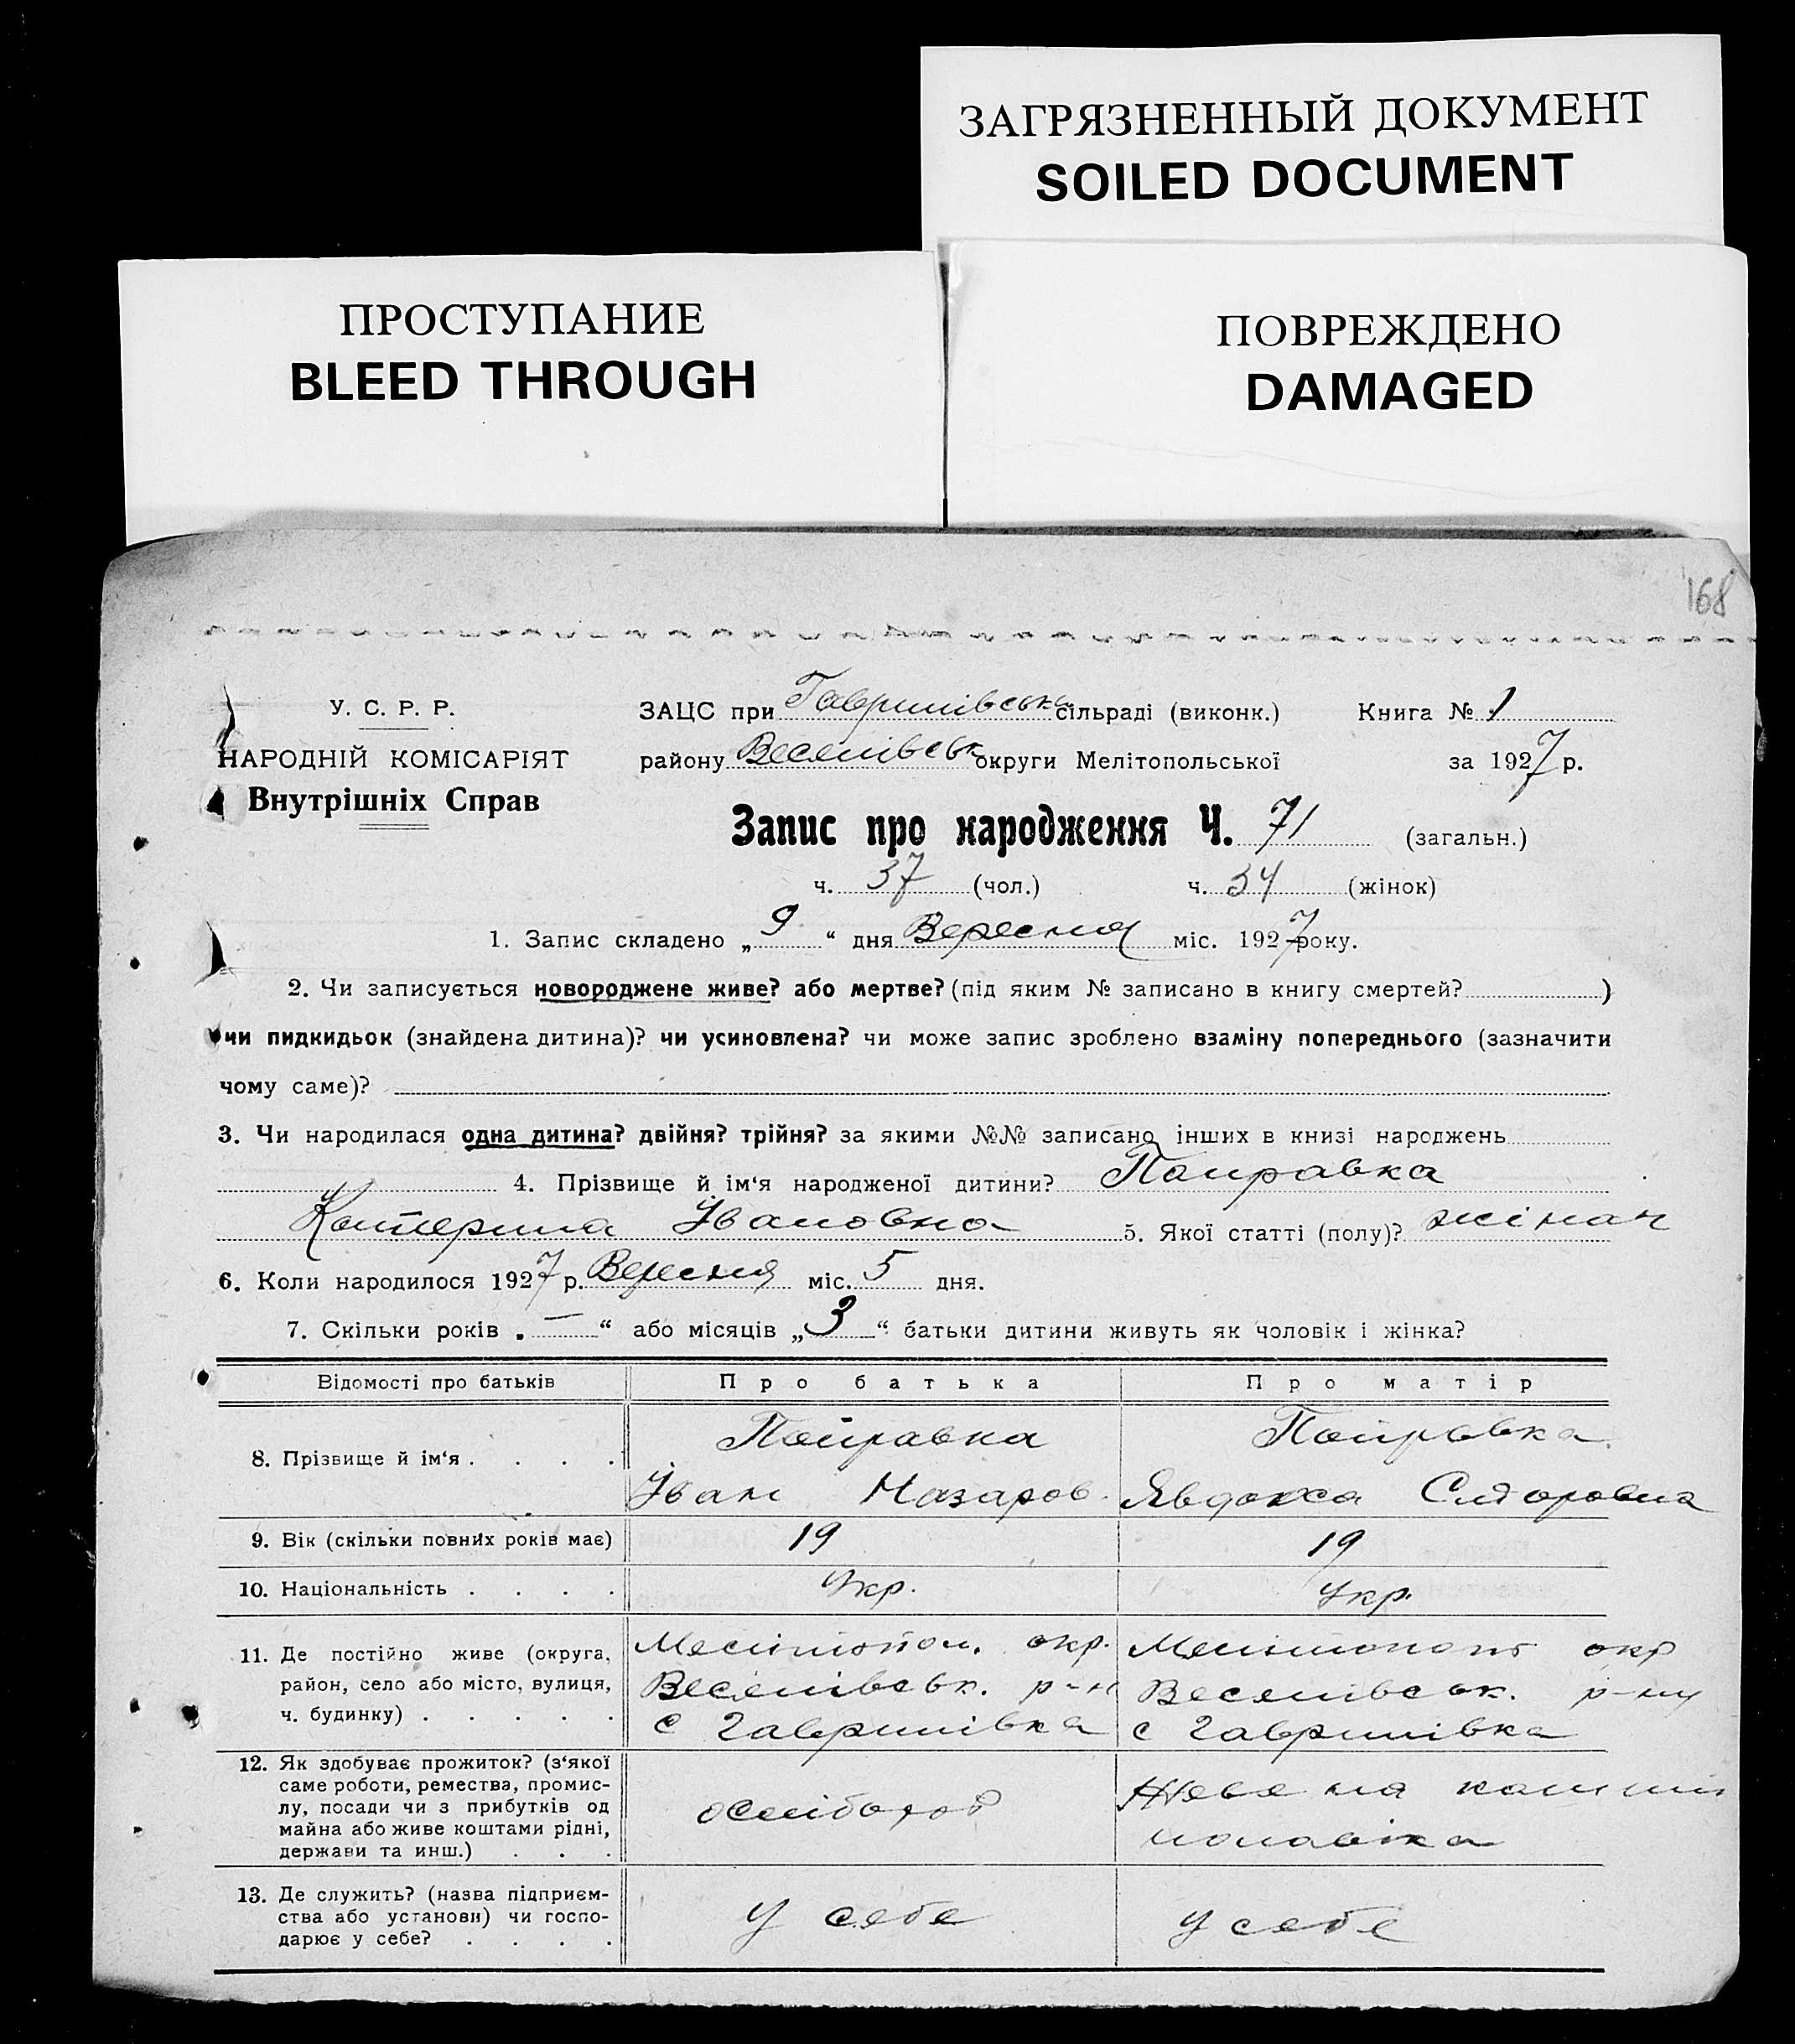 ЗАГРЯЗНЕННЫЙ ДОКУМЕНТ
SOILED DOCUMENT
ПРОСТУПАНИЕ
BLEED THROUGH
ПОВРЕЖДЕНО
DAMAGED
168
У. С. Р. Р.
НАРОДНІЙ КОМІСАРІЯТ
Внутрішніх Справ
ЗАЦС при Гаврилівська сільраді (виконк.) Книга № 1
району Веселівськ округи Мелітопольської за 1927 р.
Запис про народження Ч. 71 (загальн.)
ч. 37 (чол.) ч. 34 (жінок)
1. Запис складено „ 9 “ дня Вересня міс. 1927 року.
2. Чи записується новороджене живе? або мертве? (під яким № записано в книгу смертей? )
чи пидкидьок (знайдена дитина)? чи усиновлена? чи може запис зроблено взаміну попереднього (зазначити
чому саме)?
3. Чи народилася одна дитина? двійня? трійня? за якими №№ записано інших в книзі народжень
4. Прізвище й ім‘я народженої дитини? Поправка
Катерина Івановна 5. Якої статті (полу)? жіноч
6. Коли народилося 1927 р. Вересня міс. 5 дня.
7. Скільки років „ — “ або місяців „ 3 “ батьки дитини живуть як чоловік і жінка?
Відомості про батьків Про батька Про матір
8. Прізвище й ім‘я . . . . Поправка Поправка
Іван Назаров. Явдокса Сидоровна
9. Вік (скільки повних років має) 19 19
10. Національність . . . . Укр. Укр.
11. Де постійно живе (округа, район, село або місто, вулиця, ч. будинку) . . . . .
Мелітопол. окр.
Веселівськ. р-н
с Гаврилівка
Мелітополь окр
Веселівськ. р-ну
с Гаврилівка
12. Як здобуває прожиток? (з‘якої
саме роботи, ремества, промис-
лу, посади чи з прибутків од
майна або живе коштами рідні,
держави та инш.) . . .
Живе на кошти
чоловіка
13. Де служить? (назва підприєм-
ства або установи) чи госпо-
дарює у себе? . . . .
У себе
У себе